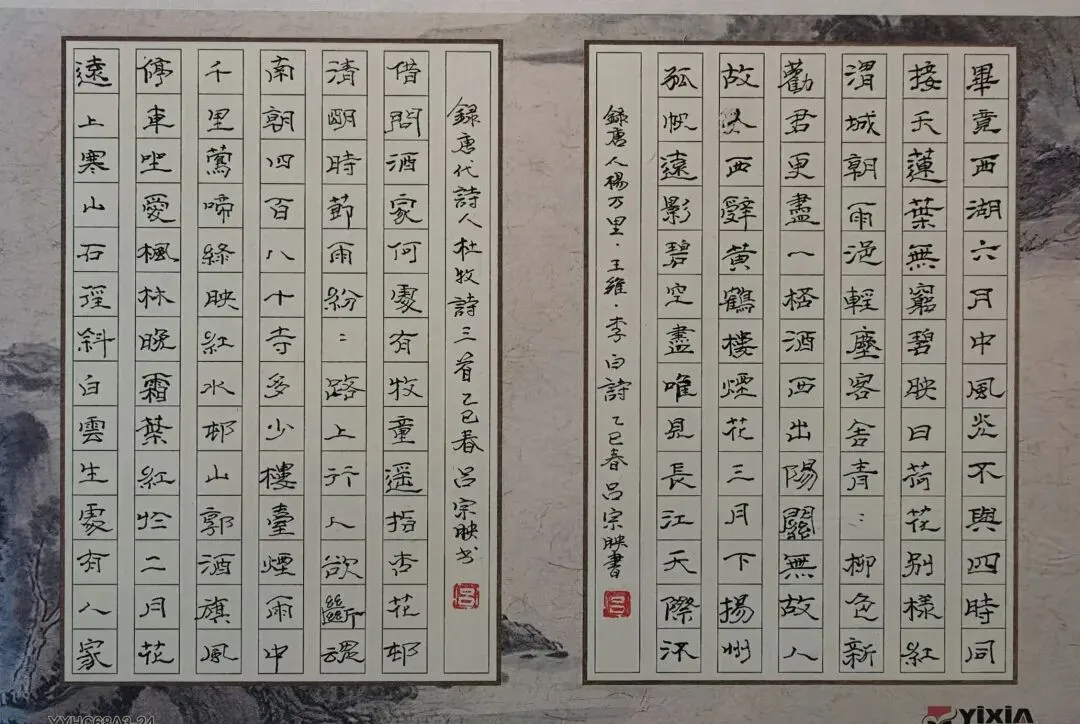 畢竟西湖六月中風光不與四時同
接天蓮葉無窮碧映日荷花别樣紅
渭城朝雨浥輕塵客舍青：柳色新
勸君更盡一桮酒西出陽關無故人
故人西辭黃鶴樓煙花三月下揚州
孤帆遠影碧空盡唯見長江天際流
録唐人楊万里·王維·李白詩 乙巳春 吕宗映書
吕
遠上寒山石徑斜白雲生處有人家
停車坐愛楓林晚霜葉紅於二月花
千里鶯啼綠映紅水邨山郭酒旗風
南朝四百八十寺多少樓臺煙雨中
清明時節雨紛：路上行人欲斷魂
借問酒家何處有牧童遥指杏花邨
録唐代詩人杜牧詩三首 乙巳春 吕宗映书
吕
YIXIA